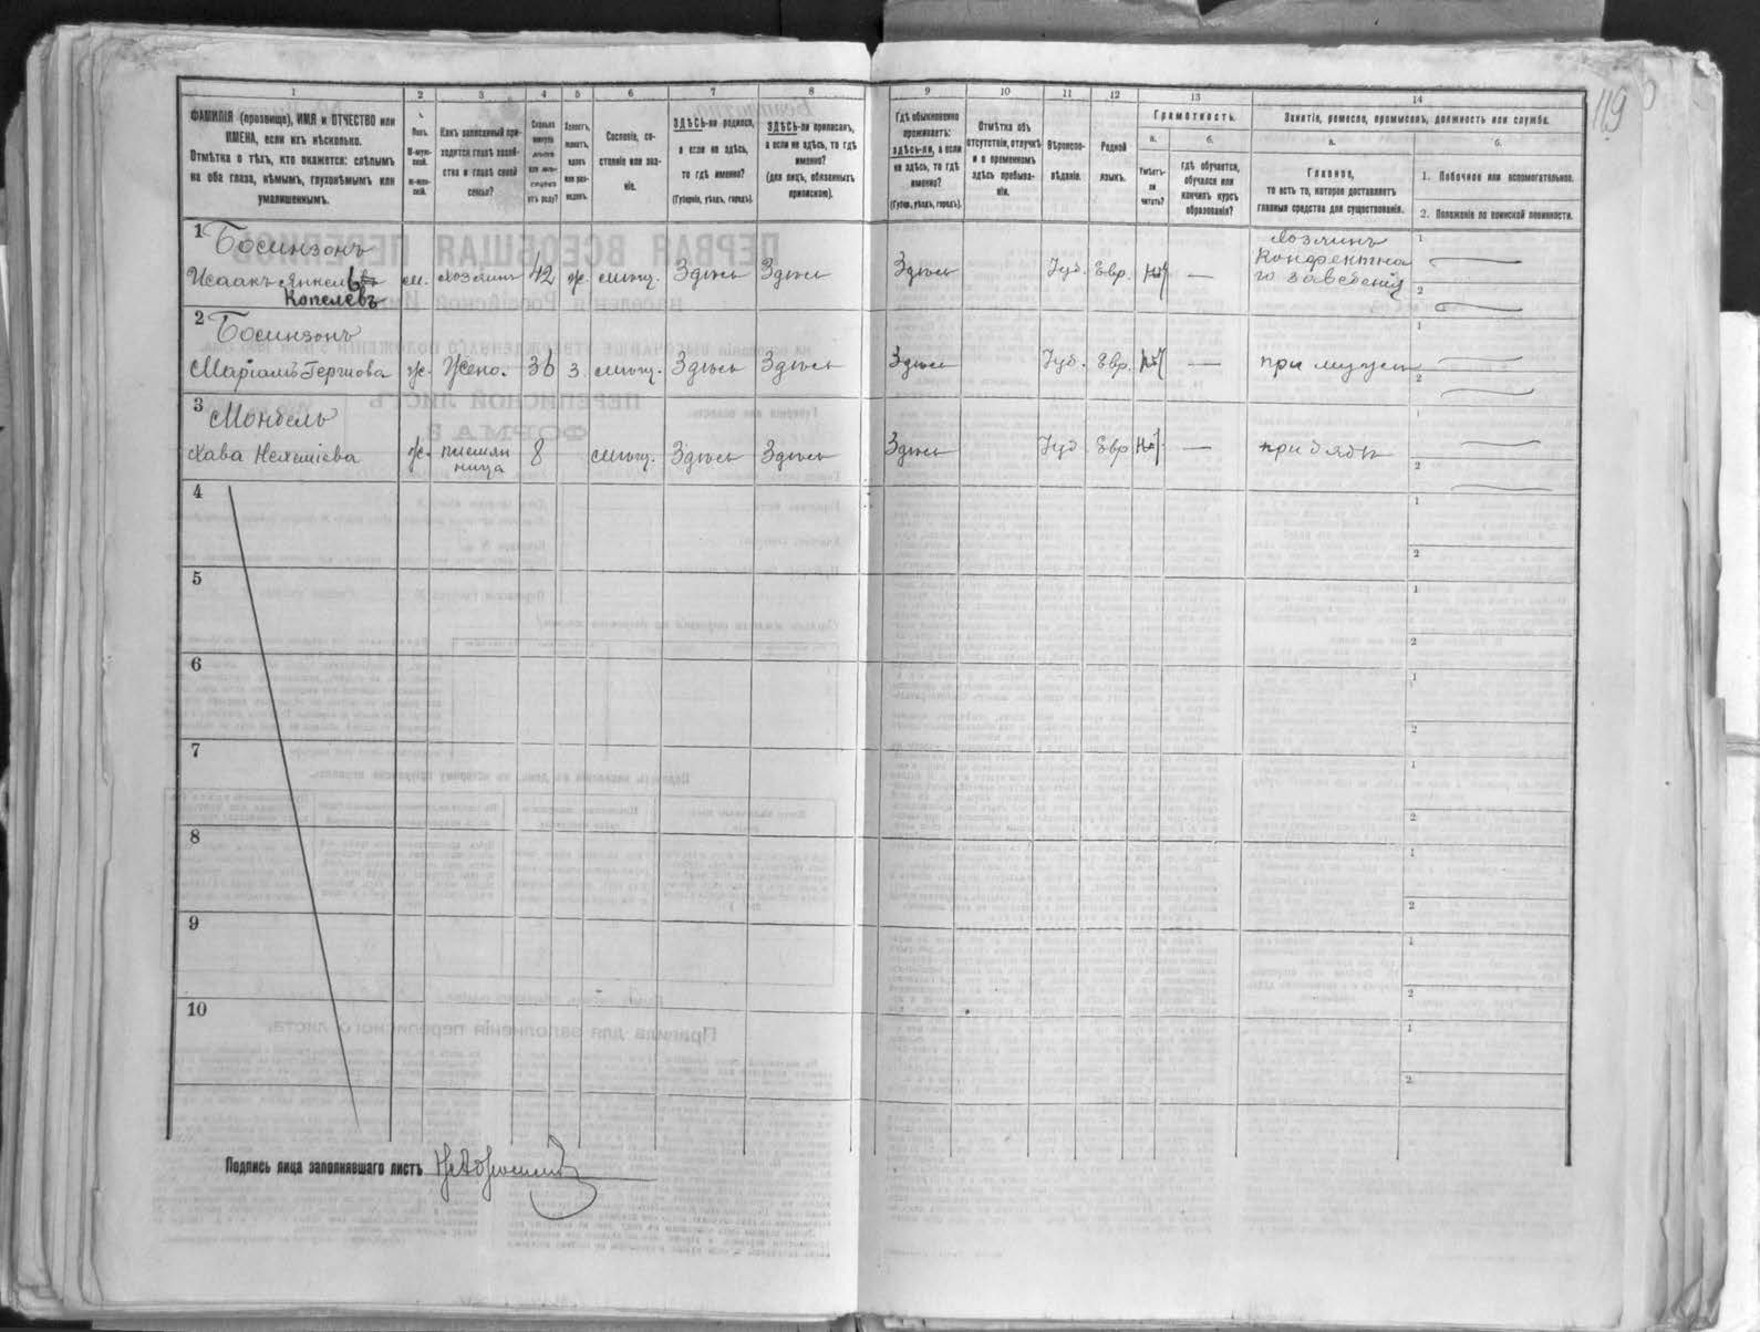 1 2 3 4 5 6 7 8
9 10 11 12 13 14
119
ФАМИЛІЯ (прозвище), ИМЯ и ОТЧЕСТВО или
ИМЕНА, если ихъ нѣсколько.
Отмѣтка о тѣхъ, кто окажется: слѣпымъ
на оба глаза, нѣмымъ, глухонѣмымъ или
умалишеннымъ.
Полъ.
М-муж-
ской.
ж-жен-
скій.
Какъ записанный при-
ходится главѣ хозяй-
ства и главѣ своей
семьи?
Сколько
минуло
лѣтъ
или мѣ-
сяцевъ
отъ роду?
Холостъ,
женатъ,
вдовъ
или раз-
веденъ.
Сословіе, со-
стояніе или зва-
ніе.
ЗДѢСЬ-ли родился,
а если не здѣсь,
то гдѣ именно?
(Губернія, уѣздъ, городъ).
ЗДѢСЬ-ли приписанъ,
а если не здѣсь, то гдѣ
именно?
(для лицъ, обязанныхъ
припискою).
Гдѣ обыкновенно
проживаетъ:
здѣсь-ли, а если
не здѣсь, то гдѣ
именно?
(Губер., уѣздъ, городъ).
Отмѣтка объ
отсутствіи, отлучкѣ
и о временномъ
здѣсь пребыва-
ніи.
Вѣроиспо-
вѣданіе.
Родной
языкъ.
Грамотность.
а.
Умѣетъ-
ли
читать?
б.
гдѣ обучается,
обучался или
кончилъ курсъ
образованія?
Занятіе, ремесло, промыселъ, должность или служба.
а.
Главное,
то есть то, которое доставляетъ
главныя средства для существованія.
б.
1. Побочное или вспомогательное.
2. Положеніе по воинской повинности.
1 Босинзонъ
Исаакъ Янкелевъ
Копелевъ
м. хозяинъ 42 ж. мѣщ. Здѣсь Здѣсь
Здѣсь Іуд. Евр. Нѣт —
Хозяинъ
Конфектна
го заведенія
1
2
2 Босинзонъ
Маріамъ Гершова ж. Жена. 36 з. мѣщ. Здѣсь Здѣсь
Здѣсь Іуд. Евр. Нѣт — при мужѣ
1
2
3 Мондель
Хава Нехеміева ж. племян
ница 8 мѣщ. Здѣсь Здѣсь
Здѣсь Іуд Евр Нѣт — при дядѣ
1
2
4
1
2
5
1
2
6
1
2
7
1
2
8
1
2
9
1
2
10
1
2
Подпись лица заполнявшаго листъ